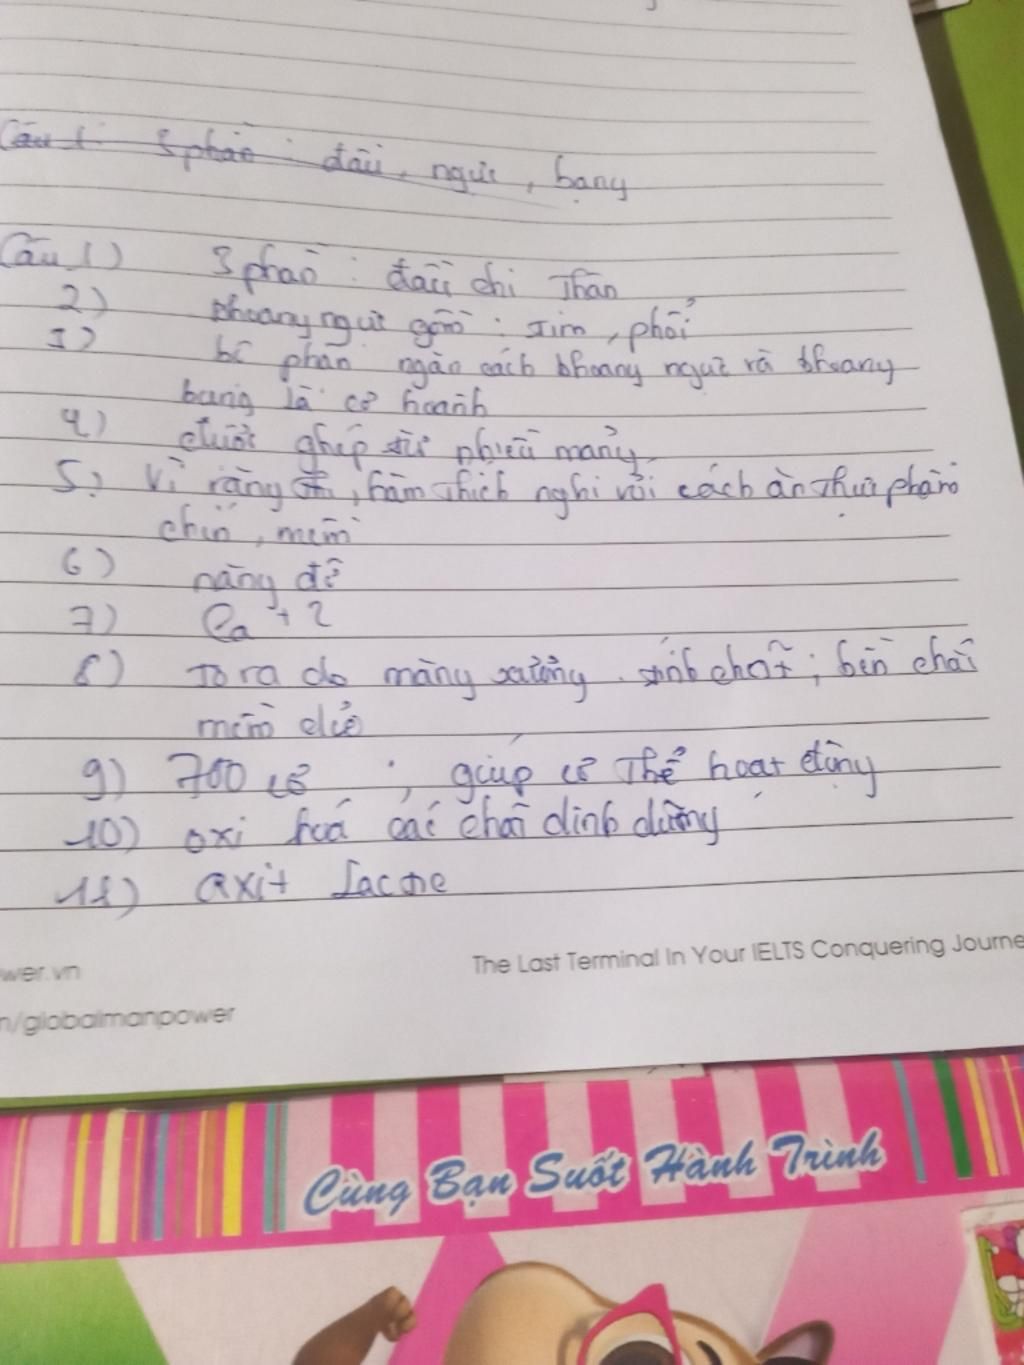 Câu 1: 3 phần : đầu, ngực, bụng
Câu 1) 3 phần : đầu chi Thân
2) khoang ngực gồm : tim, phổi
3) bộ phận ngăn cách khoang ngực và khoang
bụng là cơ hoành
4) được ghép từ nhiều mảng
5) Vì răng, hàm thích nghi với cách ăn thực phẩm
chín, mềm
6) nâng đỡ
7) Ca +2
8) To ra do màng xương. bền chắc
mềm dẻo
9) 700 cơ ; giúp cơ Thể hoạt động
10) oxi hoá các chất dinh dưỡng
11) axit Lactic
wer.vn
The Last Terminal In Your IELTS Conquering Journe
n/globalmanpower
Cùng Bạn Suốt Hành Trình